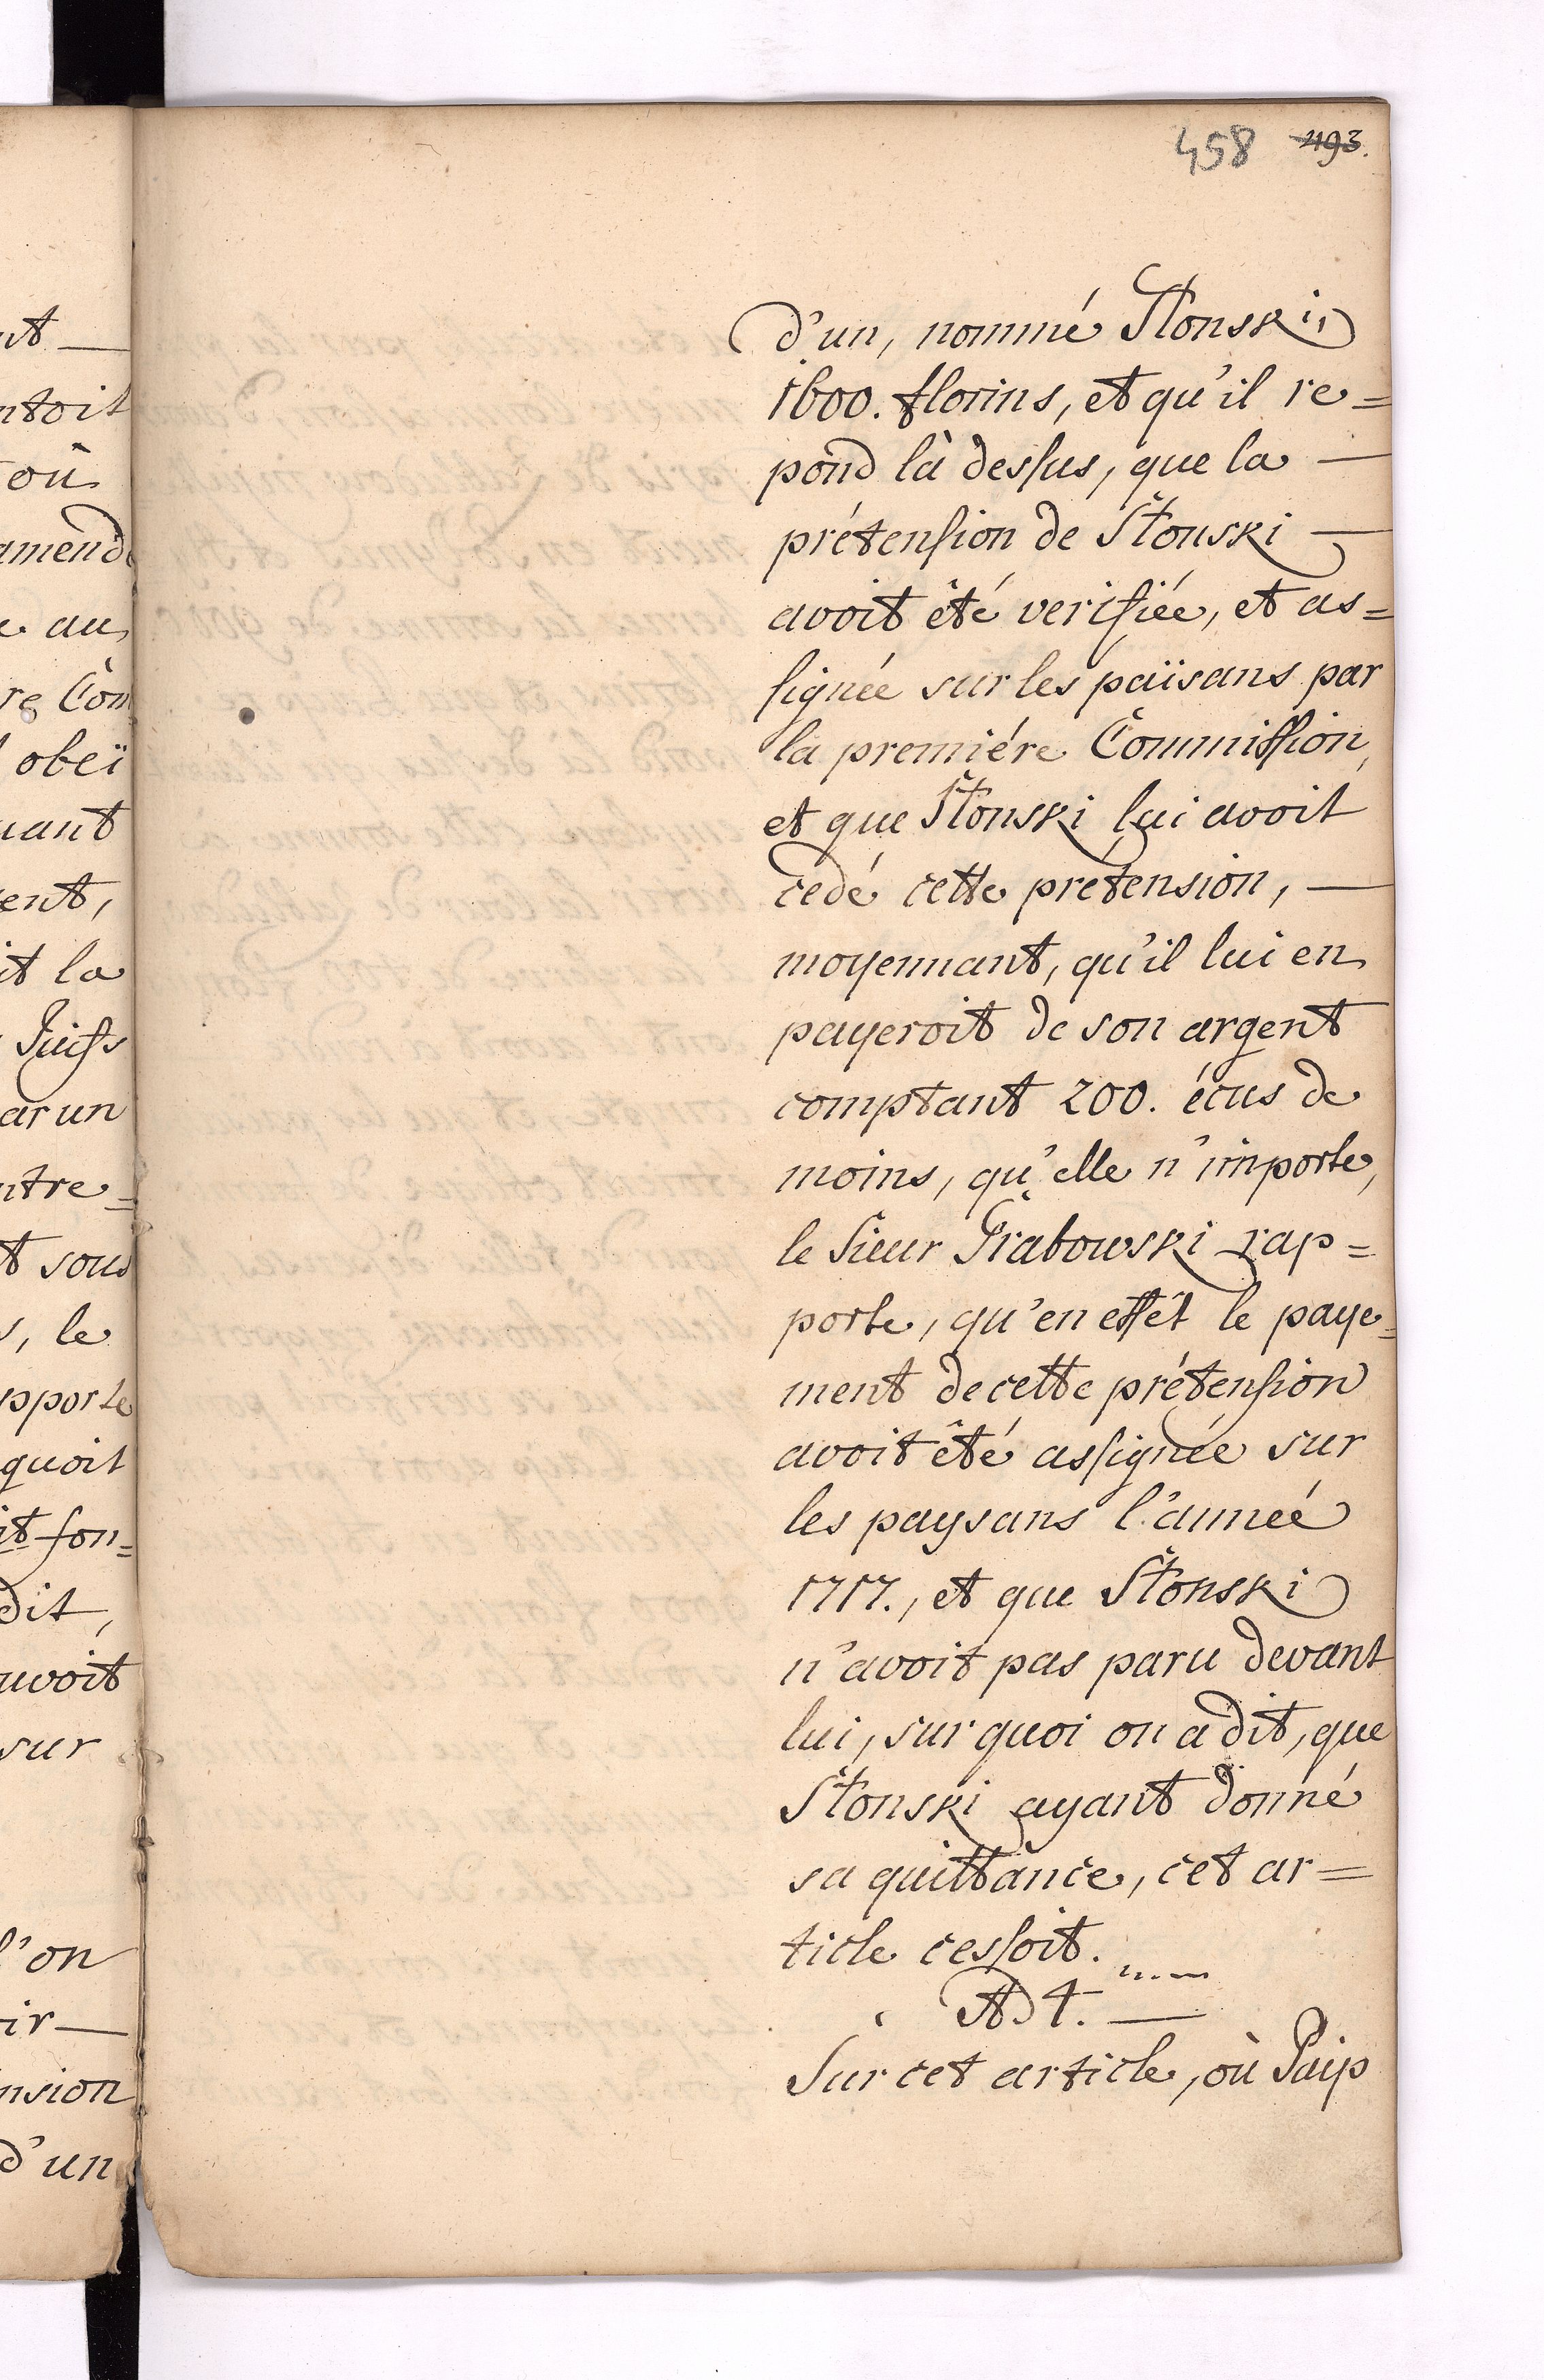 458 493.
d'un, nommé Slonski,
1600. florins, et qu'il re=
pond là dessus, que la —
prétension de Slonski —
avoit êté verifiée, et as=
signée sur les païsans par
la premiére Commission,
et que Slonski lui avoit
cedé cette prétension, —
moyennant, qu'il lui en
payeroit de son argent
comptant 200. écus de
moins, qu'elle n'importe,
le Sieur Grabowski rap=
porte, qu'en effét le paye=
ment de cette prétension
avoit êté assignée sur
les paysans l'année
1717., et que Slonski
n'avoit pas paru devant
lui, sur quoi on a dit, que
Slonski ayant donné
sa quittance, cet ar=
ticle cessoit.
Ad 4. —
Sur cet article, où